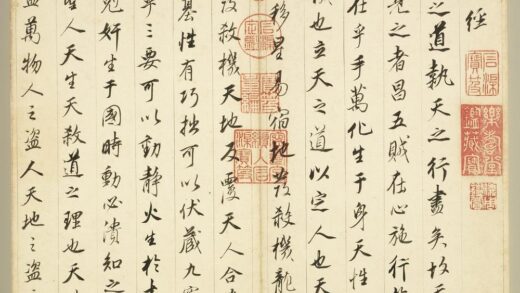 石渠寶笈
樂壽堂鑑藏寶
經
之道執天之行盡矣故天
見之者昌五賊在心施行
在乎手萬化生于身天性
也立天之道以定人也天
移星易宿地發殺機龍
發殺機天地反覆天人合
基性有巧拙可以伏藏九
乎三要可以動靜火生於
剋奸生于國時動必潰知之
聖人天生天殺道之理也天
盜萬物人之盜人天地之盜